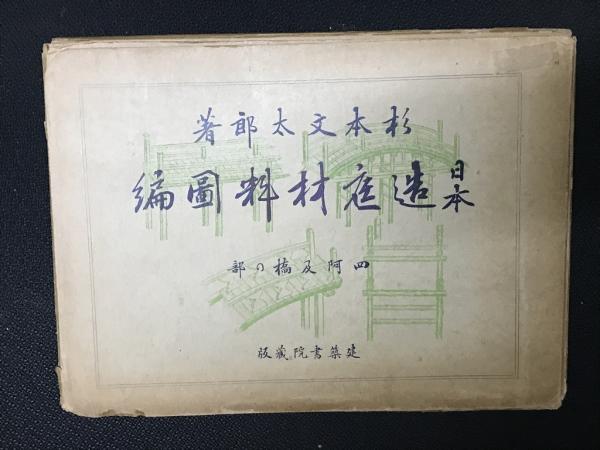 杉本文太郎著
日本造庭材料圖編
四阿及橋の部
建築書院藏版